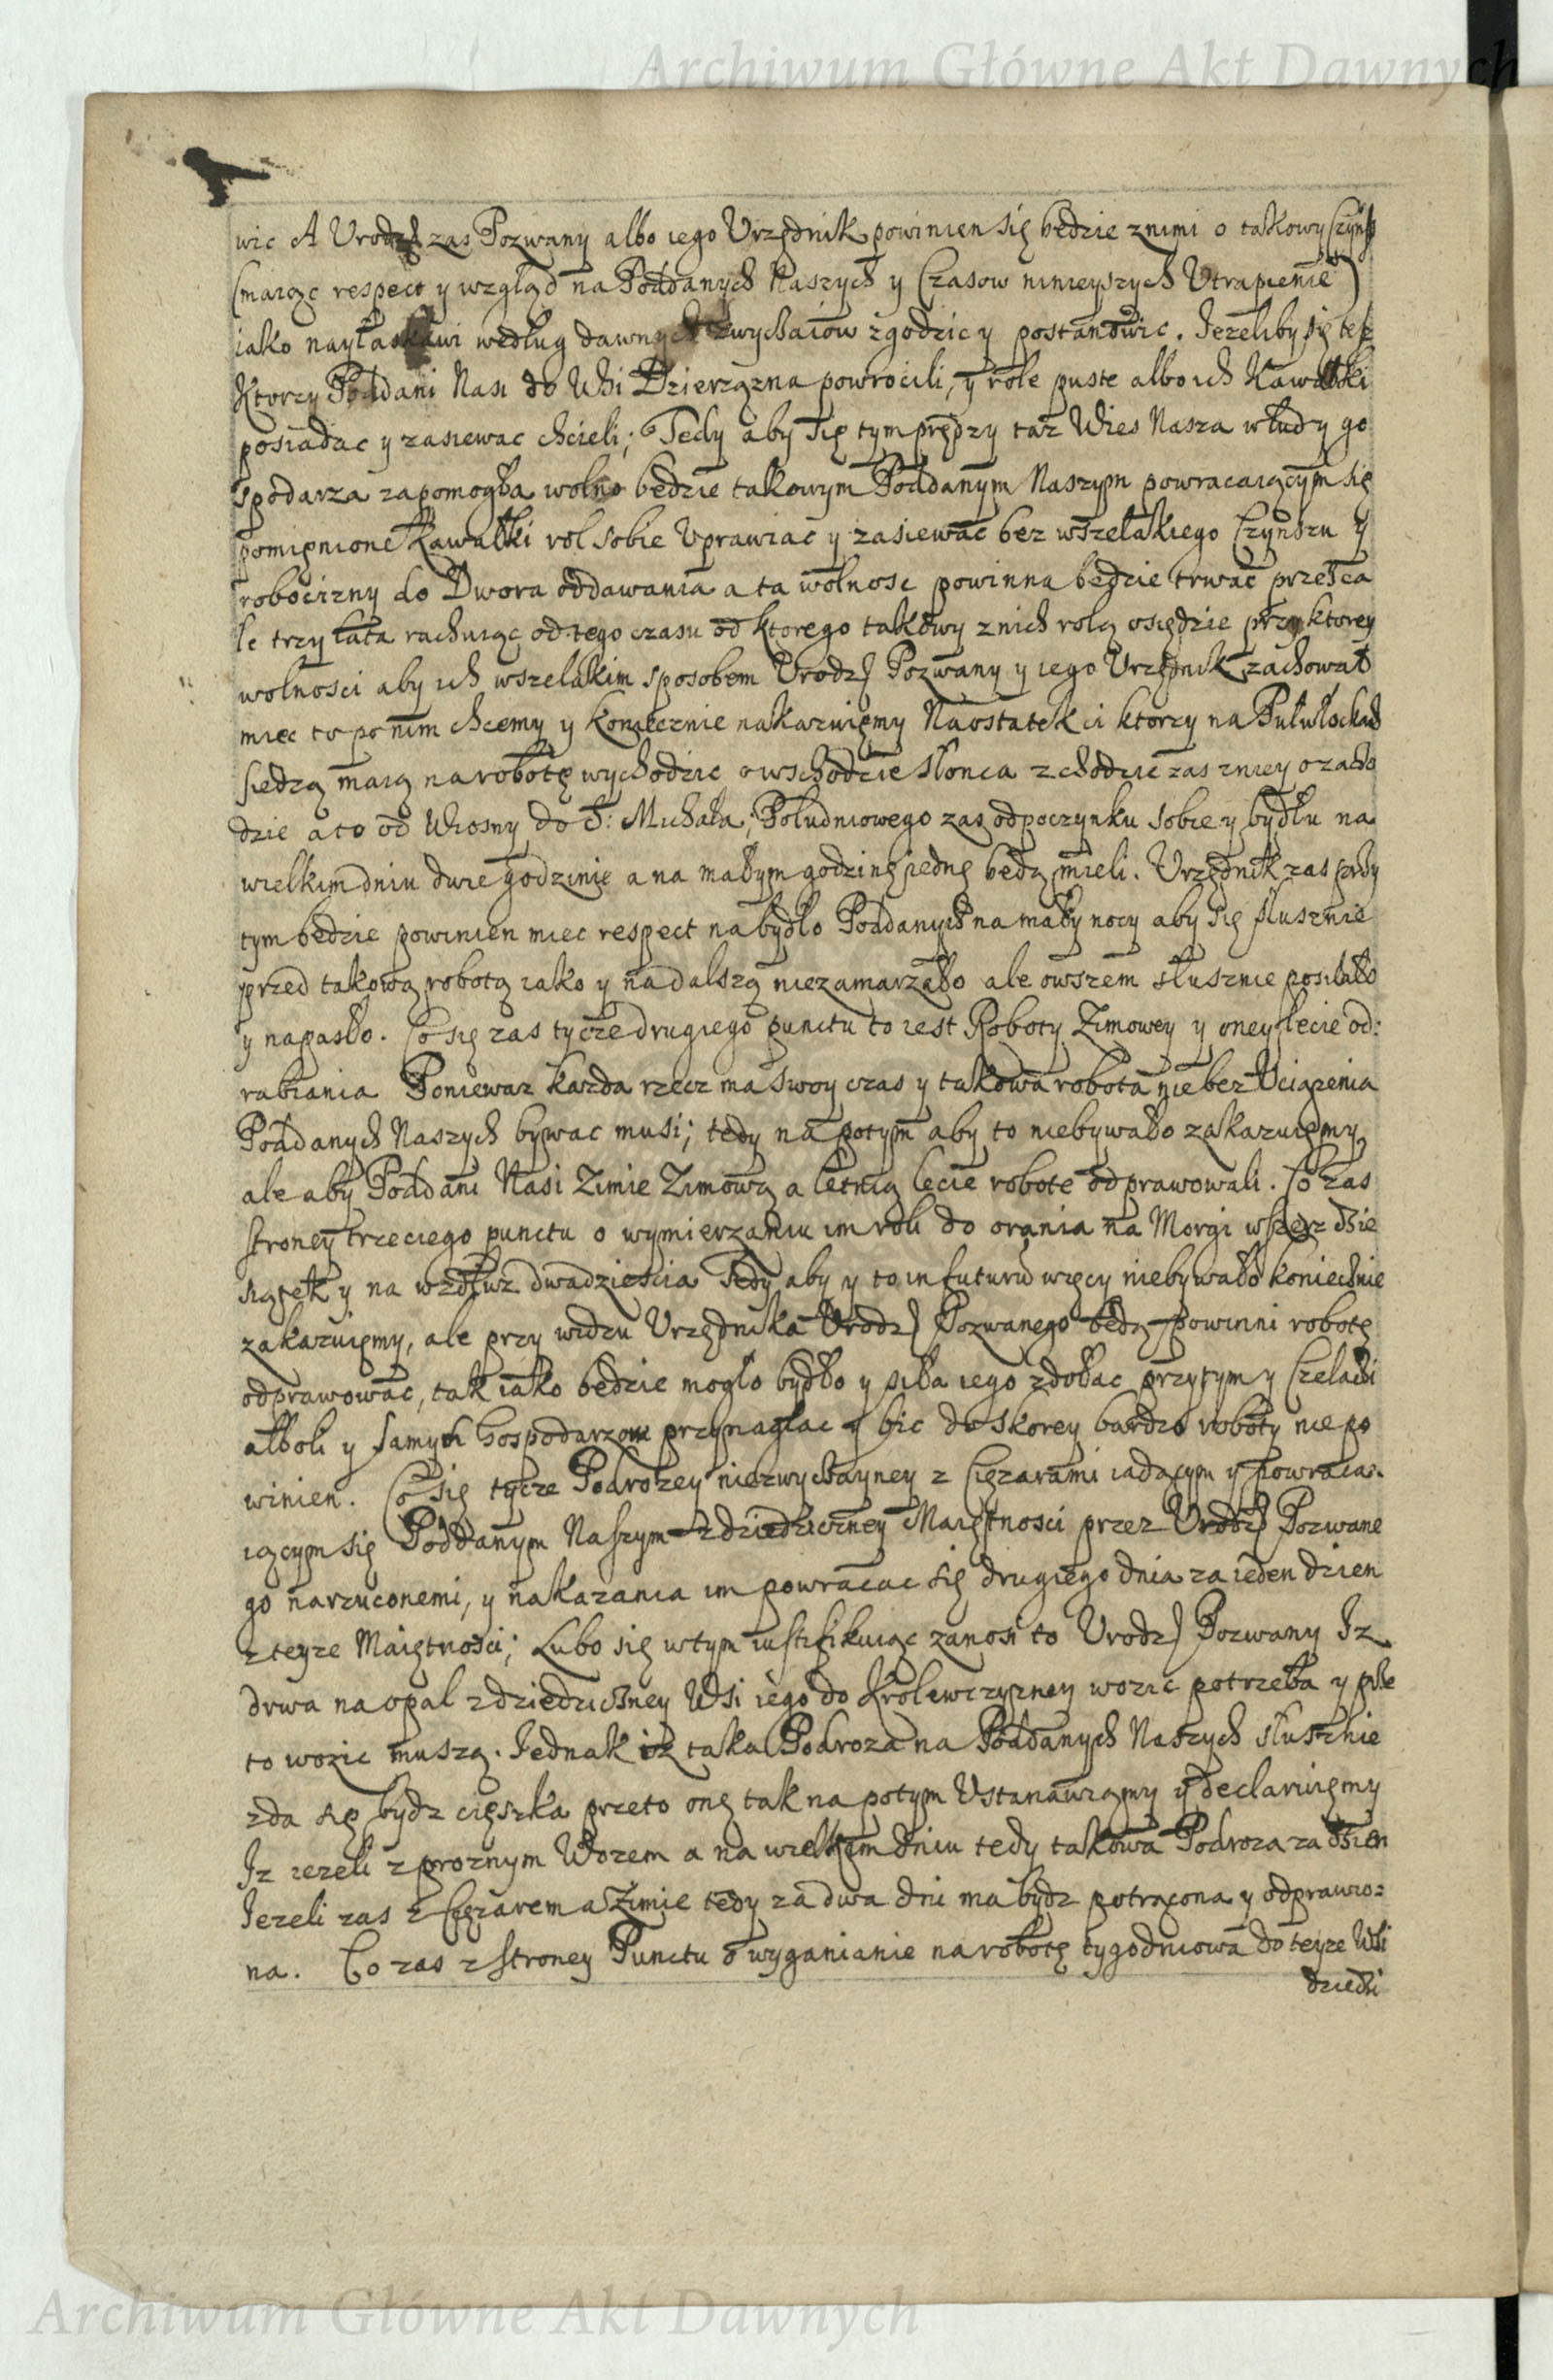 Archiwum Główne Akt Dawnych
wic A Urodz zas Pozwany albo iego Urzędnik powinien się będzie znimi o takowy Czynsz
(maiąc respect y wzgląd na Poddanych Naszych y Czasow ninieyszych Utrapienie)
iako nayłaskawi według dawnych zwychaiow zgodzic y postanowic. Jezeliby się tesz
Ktorzy Poddani Nasi do Wsi Dzierzązna powrocili, y role puste albo ich Kawałki
posiadac y zasiewac chcieli; Tedy aby się tym prędzy taz Wies Nasza w ludy go
spodarza zapomogła wolno będzie takowym Poddanym Naszym powracaiącym się
pomienione Kawałki rol sobie Uprawiac y zasiewac bez wszelakiego Czynszu y
robocizny do Dwora oddawania a ta wolnosc powinna będzie trwac przez ca
le trzy lata rachuiąc od tego czasu od ktorego takowy z nich rolą osiędzie przy ktorey
wolnosci aby ich wszelakim sposobem Urodz Pozwany y iego Urzędnik zachował
miec to po nim chcemy y koniecznie nakazuięmy Naostatek ci ktorzy na Pułwłockach
siedzą maią na robotę wychodzic o wschodzie słonca z chodzic zas zniey o zacho
dzie a to od Wiosny do S: Michała; Południowego zas odpoczynku sobie y bydłu na
wielkim dniu dwie godzinie a na małym godzinę iednę będą mieli. Urzędnik zas przy
tym będzie powinien miec respect na bydło Poddanych na mały nocy aby się słusznie
przed takową robotą iako y na dalszą niezamarzało ale owszem słusznie posilało
y napasło. Co się zas tycze drugiego punctu to iest Roboty Zimowey y oney lecie od:
rabiania Poniewaz kazda rzecz ma swoy czas y takowa robota nie bez Uciązenia
Poddanych Naszych bywac musi; tedy na potym aby to niebywało zakazuięmy,
ale aby Poddani Nasi Zimie Zimową a letnią lecie robote odprawowali. Co zas
stroney trzeciego punctu o wymierzaniu im roli do orania na Morgi wszerz dzie
siątek y na wzdłuz dwadziescia Tedy aby y to in futuru więcy niebywało koniecznie
zakazuięmy, ale przy widzu Urzędnika Urodz Pozwanego będą powinni robotę
odprawowac, tak iako będzie mogło bydło y siła iego zdołac przytym y Czeladzi
alboli y samych Gospodarzow przynaglac y bic do skorey bardzo roboty nie po
winien. Co się tycze Podrozey niezwyczayney z Cięzarami iadącym y powraca:
iącym się Poddanym Naszym z dziedziczney Maiętnosci przez Urodz Pozwane
go narzuconemi, y nakazania im powracac się drugiego dnia za ieden dzien
z teyze Maiętnosci; Lubo się wtym iustifikuiąc zanosi to Urodz Pozwany Iz
drwa na opal z dziedziczney Wsi iego do Krolewczyzney wozic potrzeba y prze
to wozic muszą. Jednak iz taka Podroza na Poddanych Naszych słusznie
zda się bydz cięszka przeto onę tak na potym Ustanawiamy y declaruięmy
Iz iezeli z proznym Wozem a na wielkiem dniu tedy takowa Podroza za dzien
Iezeli zas z Cięzarem a Zimie tedy za dwa dni ma bydz potrącona y odprawio:
na. Co zas z stroney Punctu o wyganianie na robotę tygodniową do teyze Wsi
dziedzi
Archiwum Główne Akt Dawnych